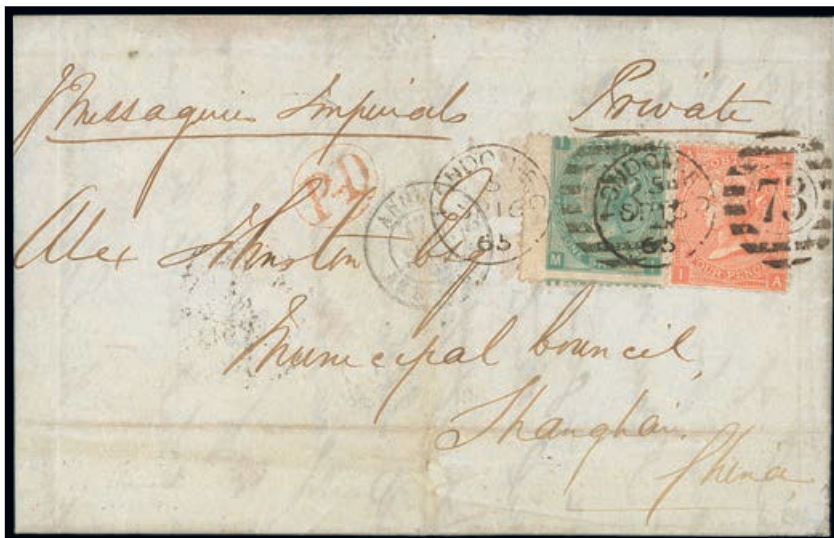 p Messageries Imperials
Private
P.D
LONDON E.C
SP 16
65
LONDON E.C
SP 16
65
73
M
FOUR PENCE
I A
Alex Johnston Esq
Municipal Council,
Shanghai.
China